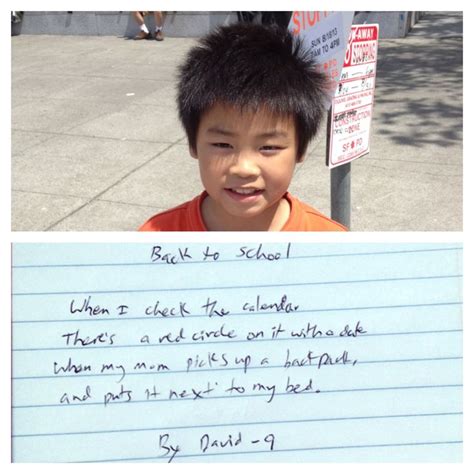 STOPP
SUN 8/18/13
7AM TO 4PM
-AWAY
STOPPING
CONSTRUCTION
ZONE
SF PD
Back to school
When I check the calendar
There's a red circle on it with a date
When my mom picks up a backpack,
and puts it next to my bed.
By David - 9